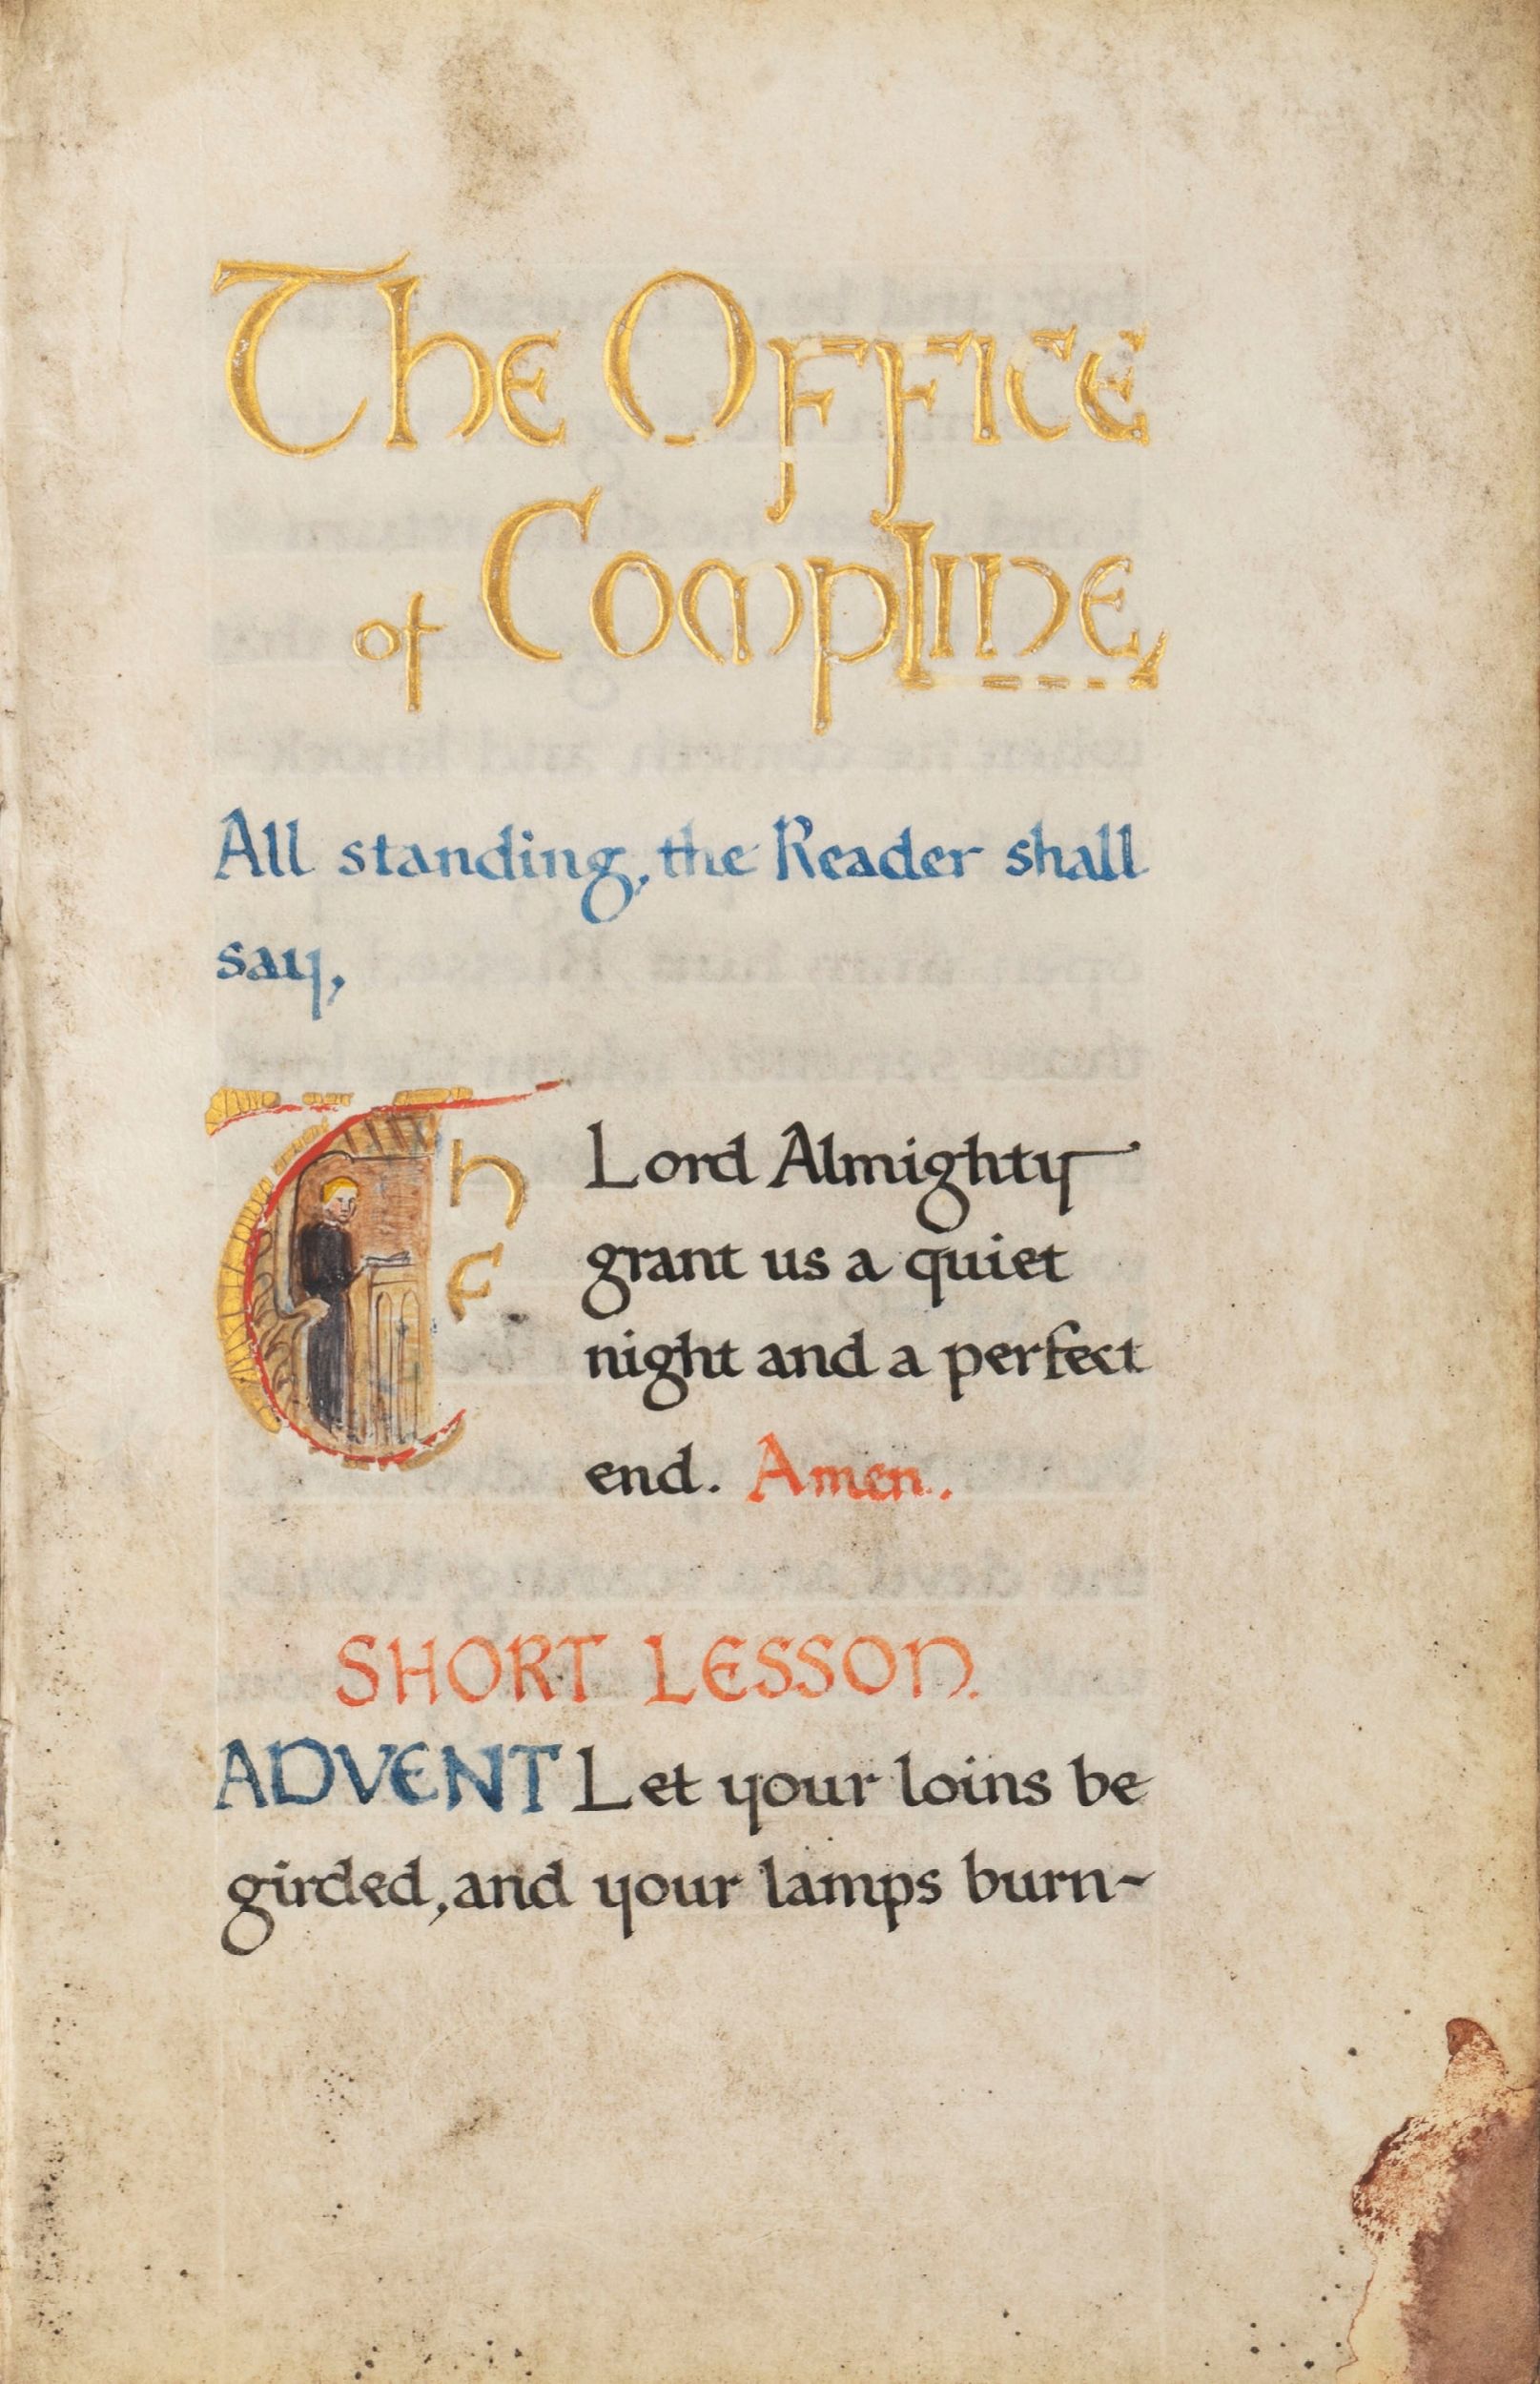 The Office
of Compline,
All standing, the Reader shall
say,
The Lord Almighty
grant us a quiet
night and a perfect
end. Amen.
SHORT LESSON.
ADVENT Let your loins be
girded, and your lamps burn~